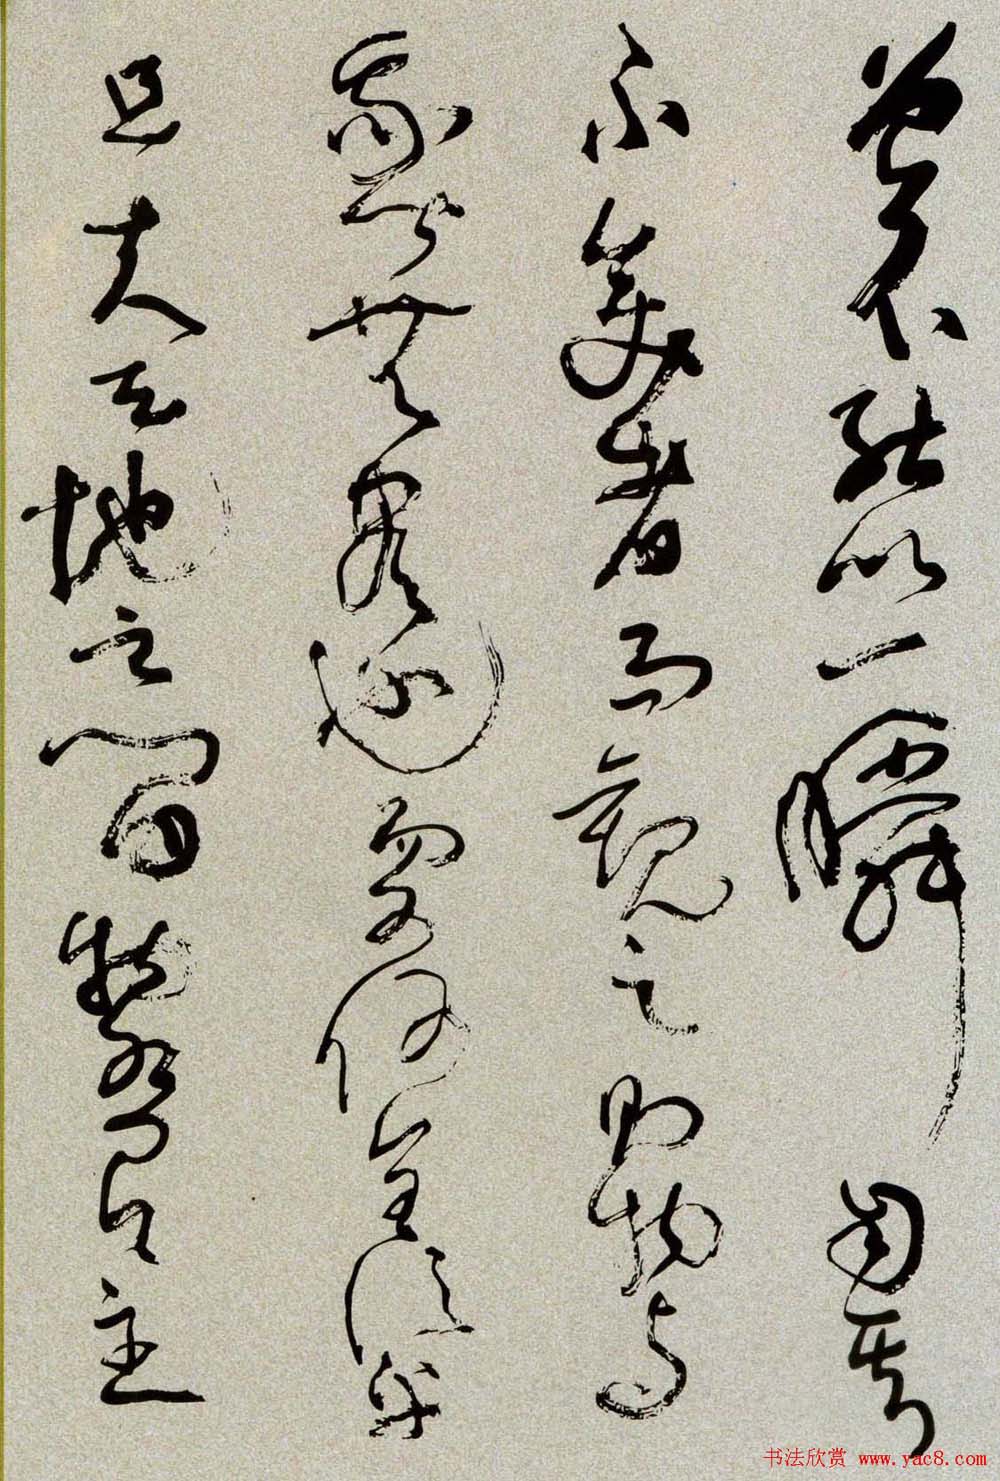 曾不能以一瞬自其
不變者而觀之則物與
我皆無盡也而又何羨乎
且夫天地之間物各有主
书法欣赏 www.yac8.com